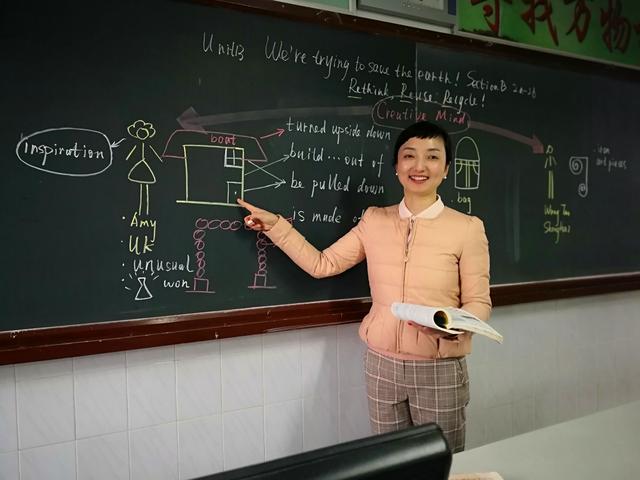 Unit13 We're trying to save the earth! Section B 2a-2b
Rethink, Reuse, Recycle!
Creative Mind
Inspiration
boat
turned upside down
build...out of
be pulled down
is made of
bag
iron
and pieces
· Amy
· UK
· unusual
won
Wang Tao
Shanghai
寻找万物